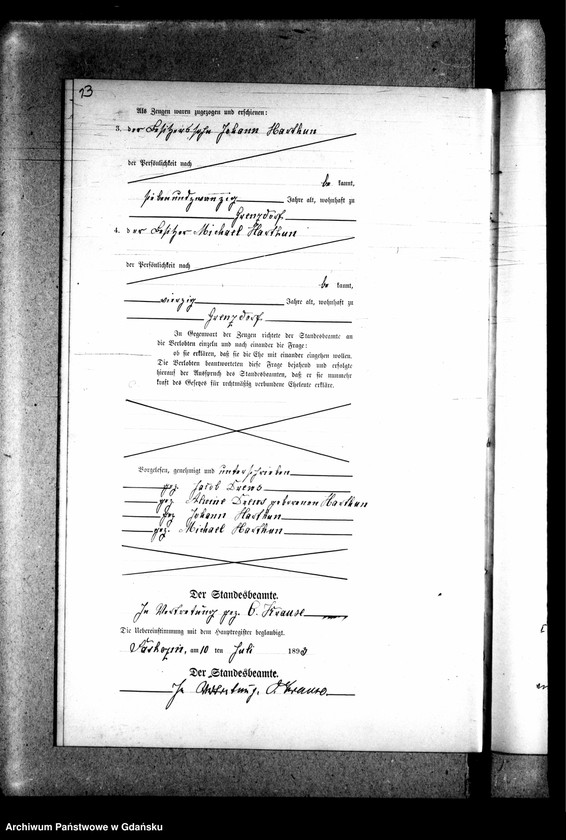 23
Als Zeugen waren zugezogen und erschienen:
3. der Besitzerssohn Johann Harthun
der Persönlichkeit nach
be kannt,
siebenundzwanzig Jahre alt, wohnhaft zu
Grenzdorf
4. der Besitzer Michael Harthun
der Persönlichkeit nach
be kannt,
vierzig Jahre alt, wohnhaft zu
Grenzdorf
In Gegenwart der Zeugen richtete der Standesbeamte an
die Verlobten einzeln und nach einander die Frage:
ob sie erklären, daß sie die Ehe mit einander eingehen wollen.
Die Verlobten beantworteten diese Frage bejahend und erfolgte
hierauf der Ausspruch des Standesbeamten, daß er sie nunmehr
kraft des Gesetzes für rechtmäßig verbundene Eheleute erkläre.
Vorgelesen, genehmigt und unterschrieben
gez. Jacob Drews
gez. Drews geborenen Harthun
gez. Johann Harthun
gez. Michael Harthun
Der Standesbeamte.
In Vertretung gez. C. Krause
Die Uebereinstimmung mit dem Hauptregister beglaubigt.
am 10 ten Juli 189
Der Standesbeamte.
In Vertretung. C. Krause
Archiwum Państwowe w Gdańsku